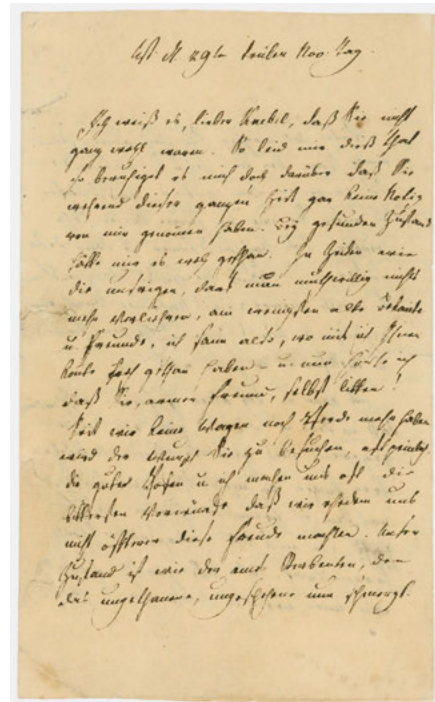 29ten trüber Nov. Tag.
Ich weiß es, lieber Knebel, daß Sie nicht
ganz wohl waren. So leid mir dieß that
so beruhiget es mich doch darüber daß Sie
während dieser ganzen Zeit gar keine Notiz
von mir genomen haben. Bey gesunden Zustand
hätte mir es weh gethan. In Zeiten wie
die unsrigen, darf man muthwillig nichts
mehr verliehren, am wenigsten alte Bekante
u. Freunde, ich sann also, wo mit ich Ihnen
konte gethan haben – u. nun höre ich
daß Sie, armer Freund, selbst litten!
Seit wir keine Wagen noch Pferde mehr haben
wird der Wunsch Sie zu besuchen, oft peinlich,
die guten u ich machen uns oft die
bittersten Vorwürfe daß wir ehedem uns
nicht öffterer diese Freude machten. Unser
Zustand ist wie der eines Sterbenden, den
das ungethane, ungeschehene nun schmerzt.